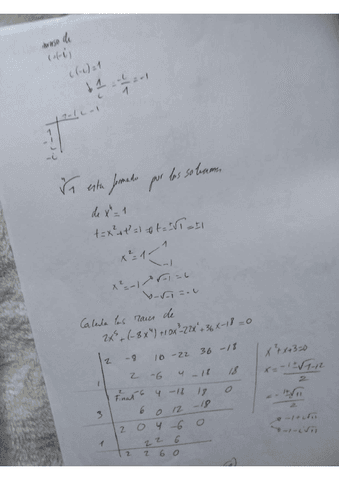 i(-i)=1
1/i = -i/1 = -i
1 -1 i -i
1
-1
i
-i
⁴√1 esta formado por las soluciones
de x⁴=1
t=x² t²=1 t=±√1=±1
x²=1 1
-1
x²=-1 √-1=i
-√-1=-i
Calcula las raices de
2x⁵+(-8x⁴)+10x³-22x²+36x-18=0
2 -8 10 -22 36 -18
1 2 -6 4 -18 18
2 -6 4 -18 18 0
3 6 0 12 -18
2 0 4 -6 0
1 2 2 6
2 2 6 0
x²+x+3=0
x= -1±√1-12 / 2
= -1±√11 / 2